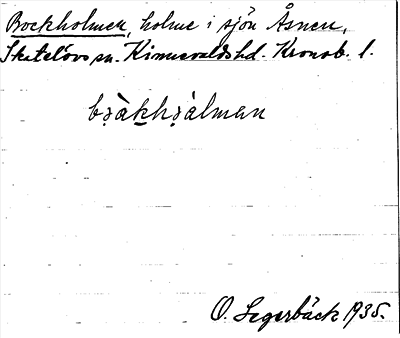 Bockholmen, holme i sjön Åsnen,
Skatelövs sn. Kinnevalds hd. Kronob. l.
bɜ̀akhɜ̀alman
O. Segerbäck 1935.